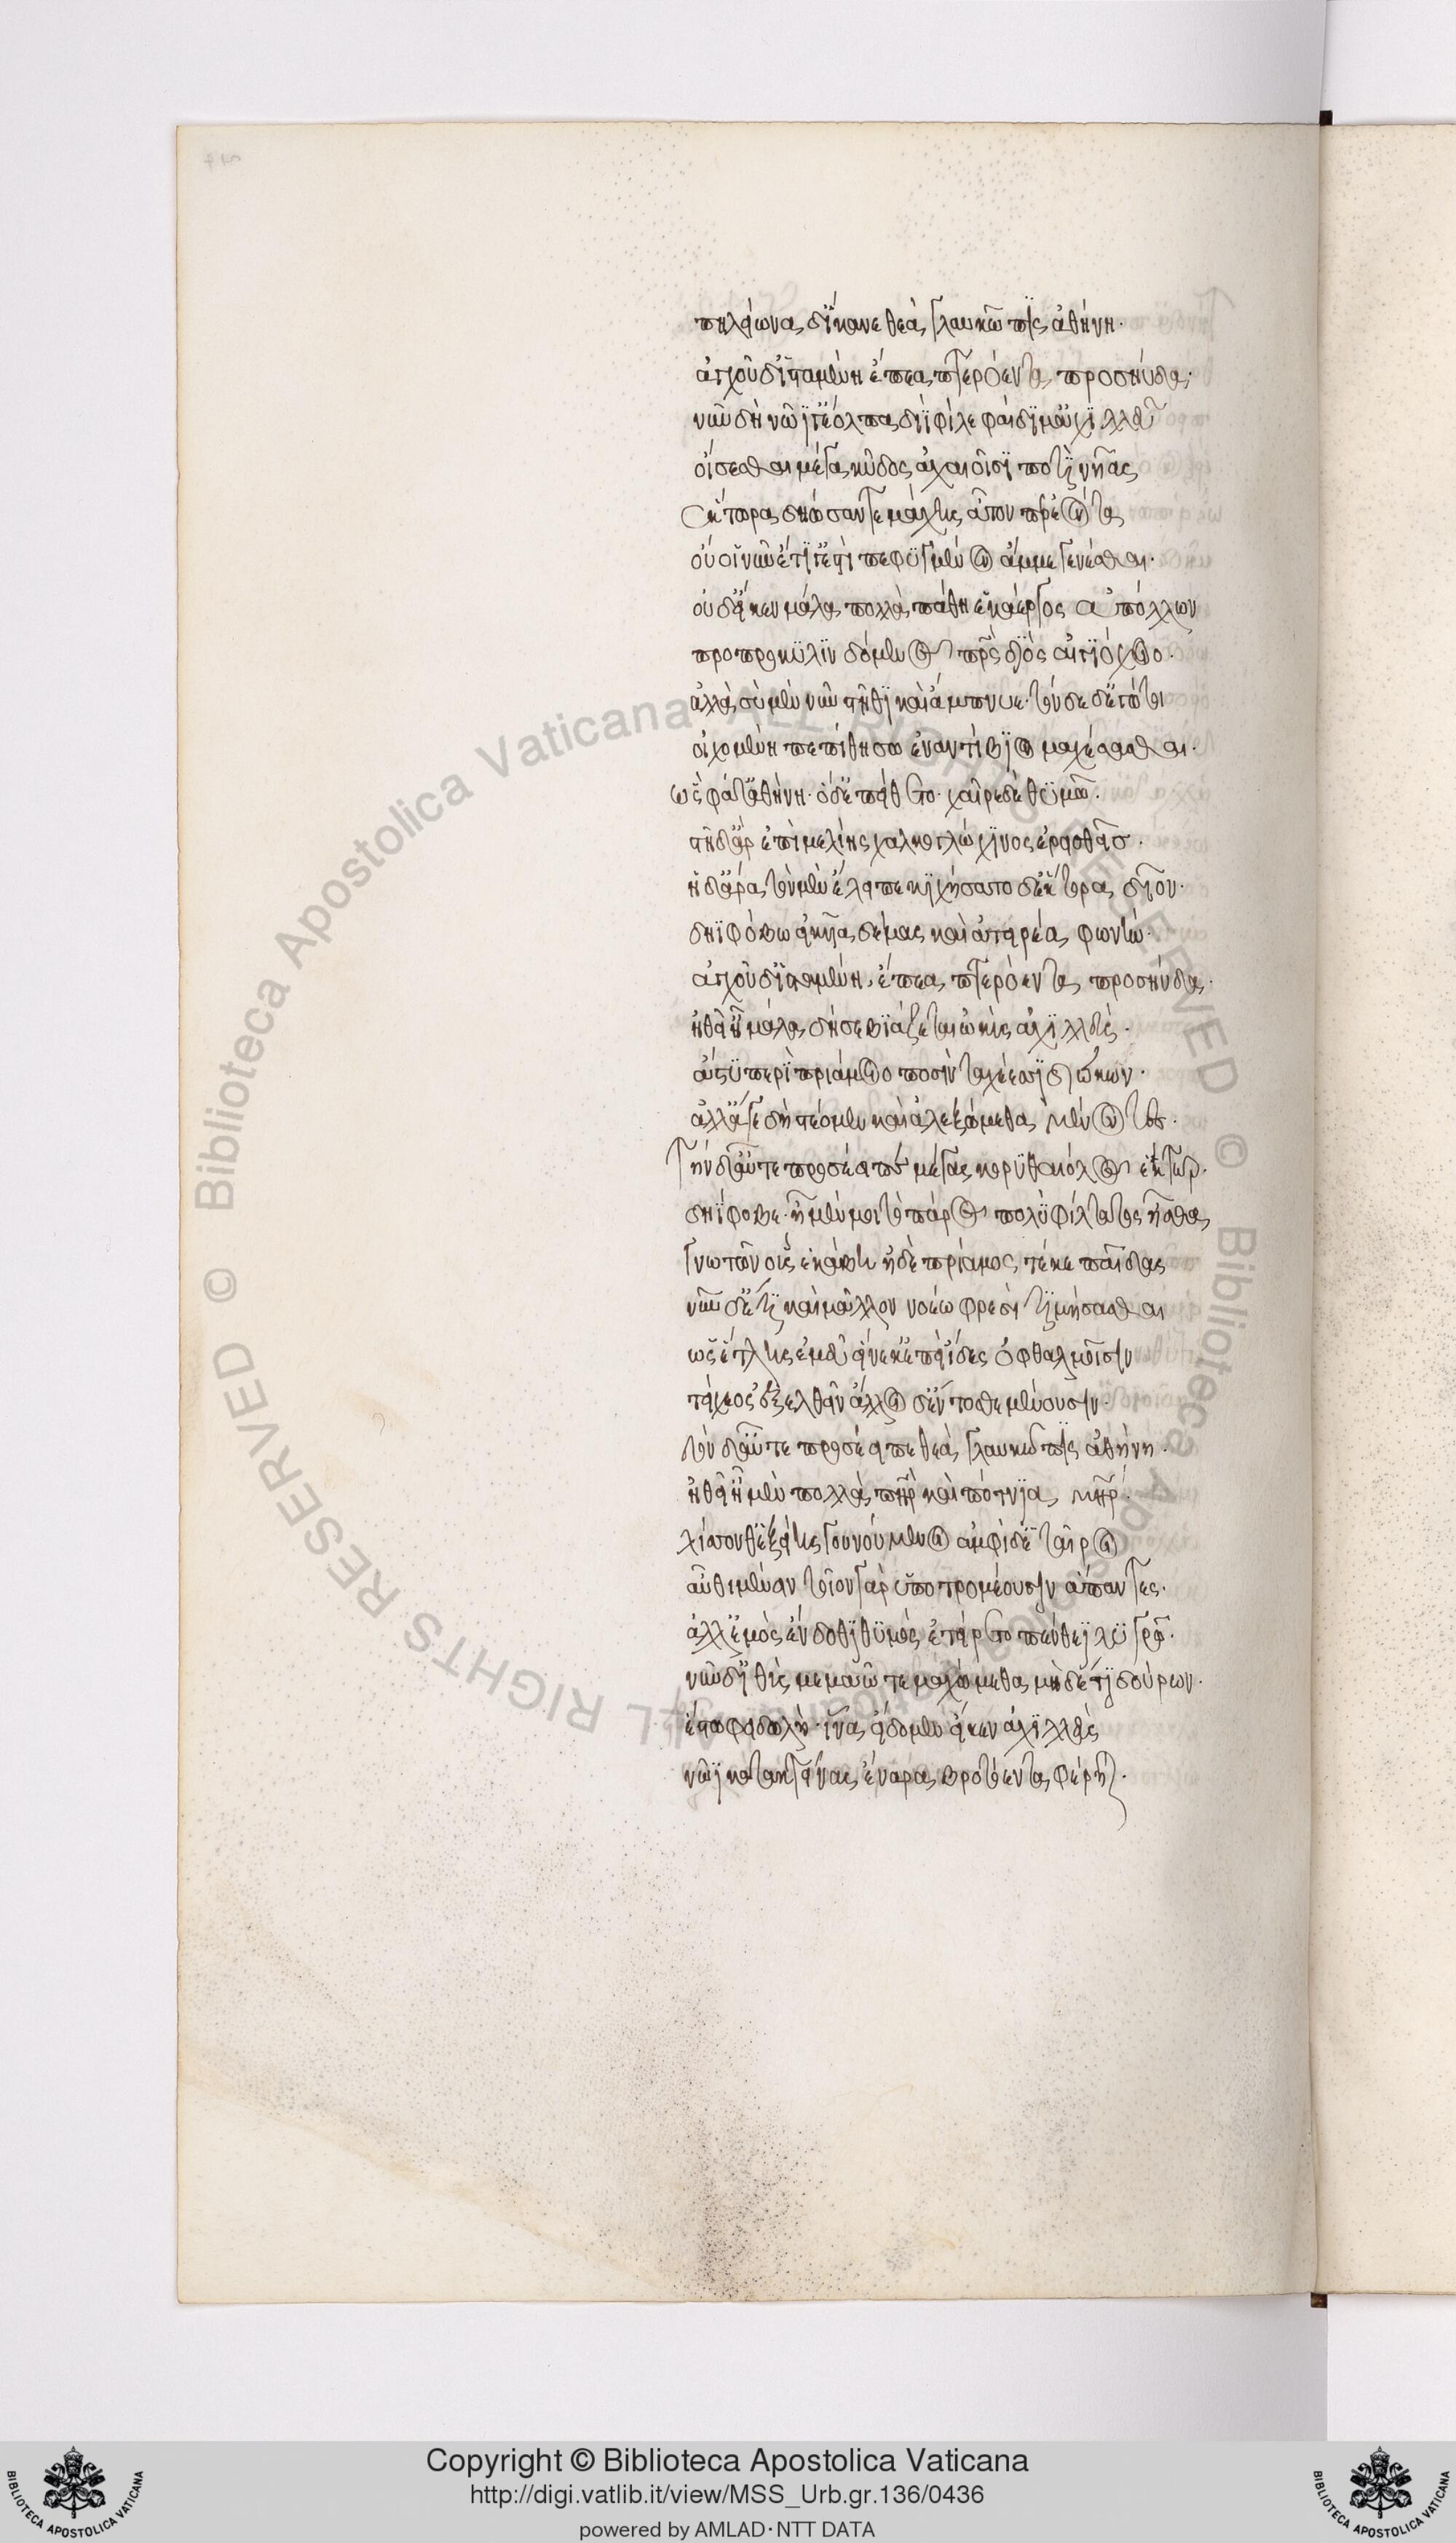 πηλείωνα δ' ἵκανε θεὰ γλαυκῶπις ἀθήνη·
ἀγχοῦ δ' ἱσταμένη ἔπεα πτερόεντα προσηύδα·
νῦν δὴ νῶϊ γ' ἔολπα διῒ φίλε φαίδιμ' ἀχιλλεῦ
οἴσεσθαι μέγα κῦδος ἀχαιοῖσι ποτὶ νῆας
ἕκτορα δηώσαντε μάχης ἆτόν περ ἐόντα
οὔ οἱ νῦν ἔτι γ' ἐστὶ πεφυγμένον ἄμμε γενέσθαι·
οὐδ' εἴ κεν μάλα πολλὰ πάθῃ ἑκάεργος ἀπόλλων
προπροκυλινδόμενος πρὸς διὸς αἰγιόχοιο·
ἀλλὰ σὺ μὲν νῦν στῆθι καὶ ἄμπνυε· τόνδε δ' ἐγώ τοι
οἰχομένη πεπιθήσω ἐναντίβιον μαχέσασθαι·
ὣς φάτ' ἀθήνη· ὁ δ' ἐπείθετο· χαῖρε δὲ θυμῷ·
στῆ δ' ἄρ' ἐπὶ μελίης χαλκογλώχινος ἐρεισθείς·
ἡ δ' ἄρα τὸν μὲν ἔλειπε κιχήσατο δ' ἕκτορα δῖον·
δηϊφόβῳ εἰκυῖα δέμας καὶ ἀτειρέα φωνήν·
ἀγχοῦ δ' ἱσταμένη ἔπεα πτερόεντα προσηύδα·
ἠθεῖ' ἦ μάλα δή σε βιάζεται ὠκὺς ἀχιλλεὺς·
ἄστυ περὶ πριάμοιο ποσὶν ταχέεσσι διώκων·
ἀλλ' ἄγε δὴ στέομεν καὶ ἀλεξώμεθα μένοντες·
τὴν δ' αὖτε προσέειπε μέγας κορυθαίολος ἕκτωρ·
δηΐφοβε· ἦ μέν μοι τὸ πάρος πολὺ φίλτατος ἦσθα
γνωτῶν οὓς ἑκάβη ἠδὲ πρίαμος τέκε παῖδας
νῦν δ' ἔτι καὶ μᾶλλον νοέω φρεσὶ τιμήσασθαι
ὃς ἔτλης ἐμεῦ εἵνεκ' ἐπεὶ ἴδες ὀφθαλμοῖσιν
τείχεος ἐξελθεῖν ἄλλοι δ' ἔντοσθε μένουσιν·
τὸν δ' αὖτε προσέειπε θεὰ γλαυκῶπις ἀθήνη·
ἠθεῖ' ἦ μὲν πολλὰ πὴρ καὶ πότνια μὴρ·
λίσσονθ' ἑξείης γουνούμενοι ἀμφὶ δ' ἑταῖροι
αὖθι μένειν τοῖον γὰρ ὑποτρομέουσιν ἅπαντες·
ἀλλ' ἐμὸς ἔνδοθι θυμὸς ἐτείρετο πένθεϊ λυγρῷ·
νῦν δ' ἰθὺς μεμαῶτε μαχώμεθα μὴ δέ τι δούρων·
ἔστω φειδωλή· ἵνα εἴδομεν εἴ κεν ἀχιλλεὺς
νῶϊ κατακτείνας ἔναρα βροτόεντα φέρηται·
Biblioteca Apostolica Vaticana ALL RIGHTS RESERVED © Biblioteca Apostolica Vaticana ALL RIGHTS RESERVED ©
Copyright © Biblioteca Apostolica Vaticana
http://digi.vatlib.it/view/MSS_Urb.gr.136/0436
powered by AMLAD·NTT DATA
BIBLIOTECA APOSTOLICA VATICANA
BIBLIOTECA APOSTOLICA VATICANA